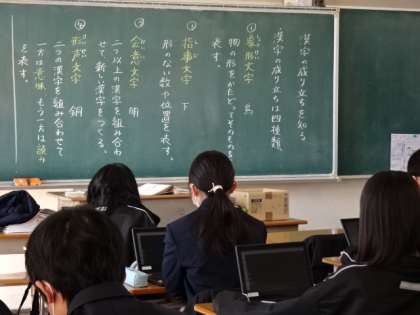 漢字の成り立ちを知る。
漢字の成り立ちは四種類
①象形文字 鳥
物の形をかたどってそのものを
表す。
②指事文字 下
形のない数や位置を表す。
③会意文字 明
二つ以上の漢字を組み合わ
せて、新しい漢字をつくる。
④形声文字 銅
二つの漢字を組み合わせて
一方は意味、もう一方は読み
を表す。